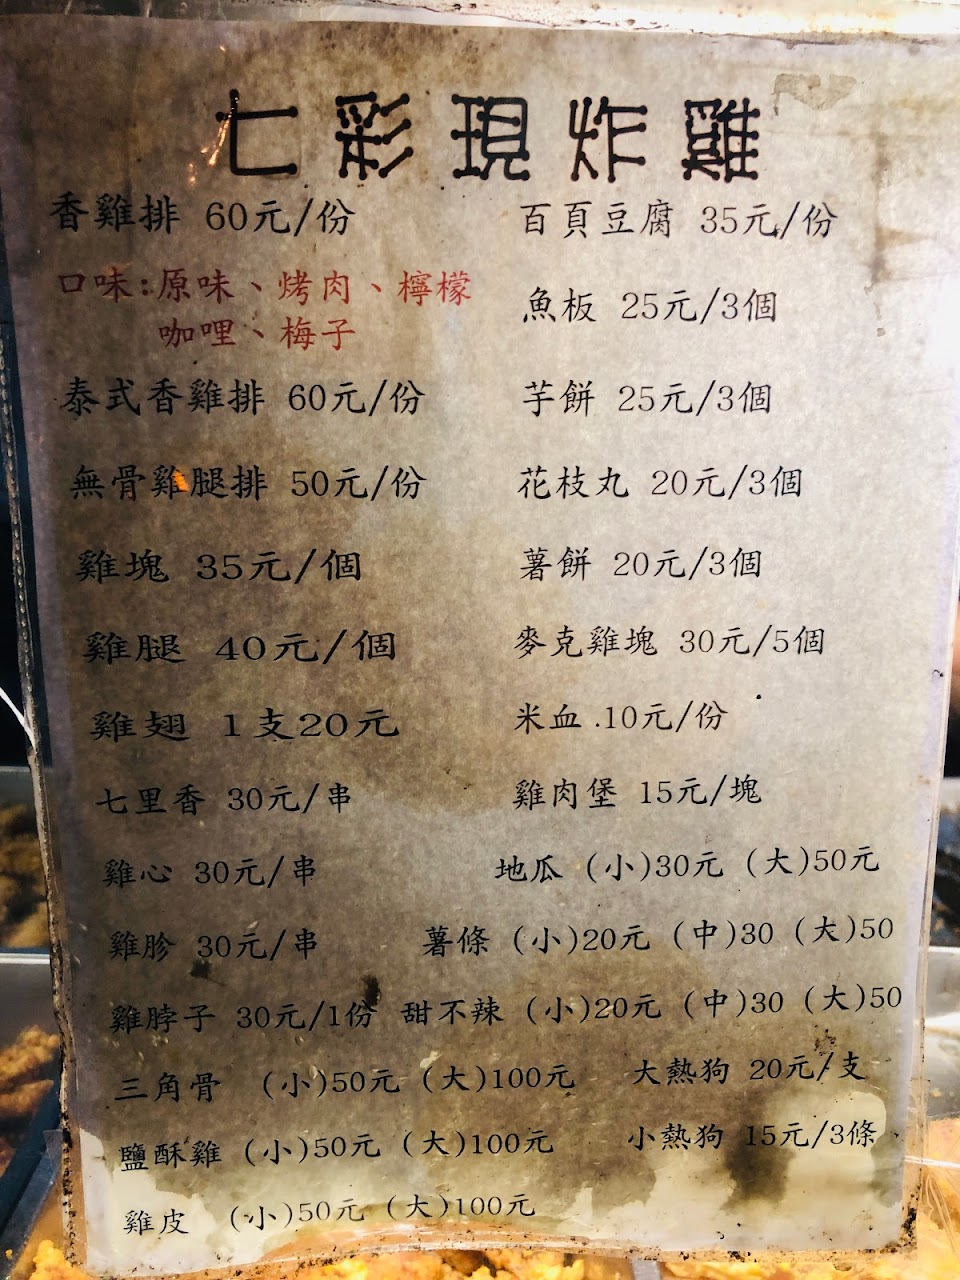 七彩現炸雞
香雞排 60元/份
口味:原味、烤肉、檸檬
咖哩、梅子
泰式香雞排 60元/份
無骨雞腿排 50元/份
雞塊 35元/個
雞腿 40元/個
雞翅 1支20元
七里香 30元/串
雞心 30元/串
雞胗 30元/串
雞脖子 30元/1份
三角骨 (小)50元 (大)100元
鹽酥雞 (小)50元 (大)100元
雞皮 (小)50元 (大)100元
百頁豆腐 35元/份
魚板 25元/3個
芋餅 25元/3個
花枝丸 20元/3個
薯餅 20元/3個
麥克雞塊 30元/5個
米血 .10元/份
雞肉堡 15元/塊
地瓜 (小)30元 (大)50元
薯條 (小)20元 (中)30 (大)50
甜不辣 (小)20元 (中)30 (大)50
大熱狗 20元/支
小熱狗 15元/3條